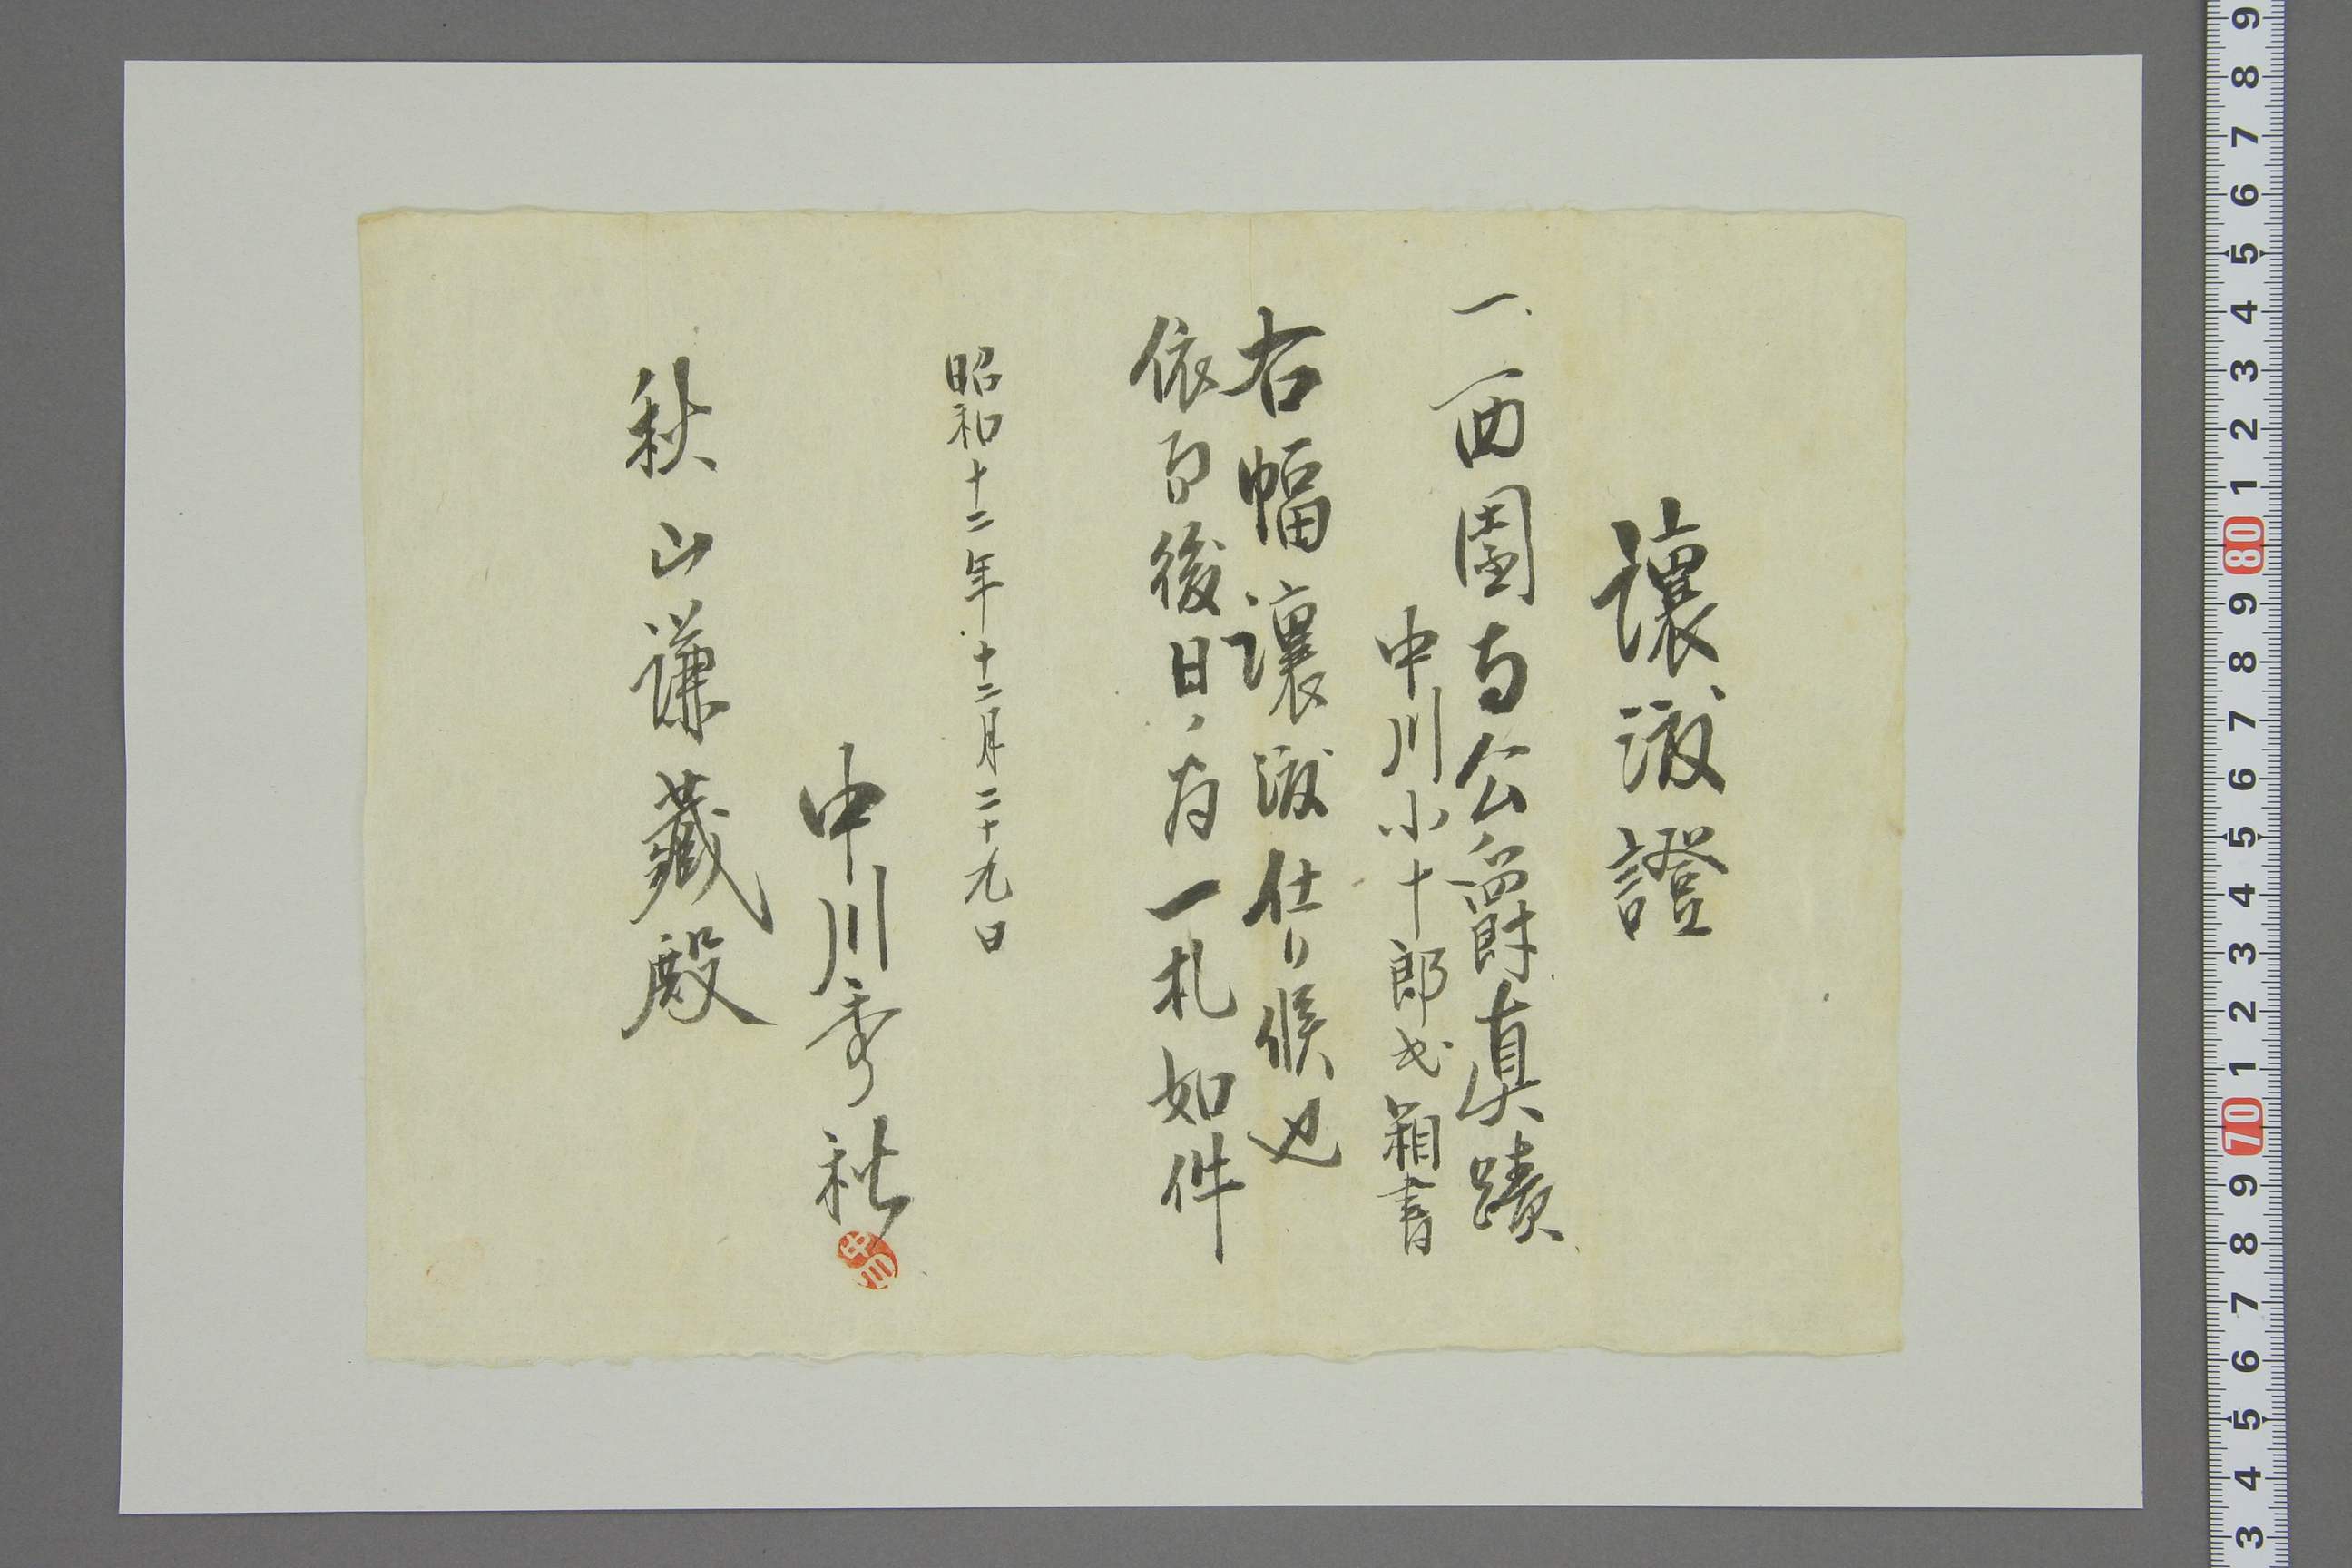 讓渡證
一、西園寺公爵真蹟
中川小十郎氏箱書
右幅讓渡仕リ候也
依而後日ノ為一札如件
昭和十二年十二月二十九日
中川秀
中川
秋山謙藏殿
9 8 7 6 5 4 3 2 1 80 9 8 7 6 5 4 3 2 1 70 9 8 7 6 5 4 3